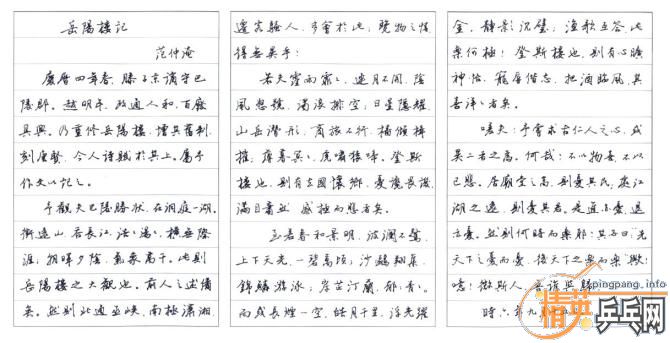 岳陽樓記
范仲淹
慶曆四年春，滕子京謫守巴
陵郡。越明年，政通人和，百廢
具興。乃重修岳陽樓，增其舊制，
刻唐賢、今人詩賦於其上。屬予
作文以記之。
予觀夫巴陵勝狀，在洞庭一湖。
銜遠山，吞長江，浩浩湯湯，橫無際
涯；朝暉夕陰，氣象萬千。此則
岳陽樓之大觀也。前人之述備
矣。然則北通巫峽，南極瀟湘，
遷客騷人，多會於此，覽物之情，
得無異乎？
若夫霪雨霏々，連月不開，陰
風怒號，濁浪排空，日星隱耀，
山岳潛形，商旅不行，檣傾楫
摧，薄暮冥々，虎嘯猿啼。登斯
樓也，則有去國懷鄉，憂讒畏譏，
滿目蕭然，感極而悲者矣。
至若春和景明，波瀾不驚，
上下天光，一碧萬頃；沙鷗翔集，
錦鱗游泳；岸芷汀蘭，郁々青々。
而或長煙一空，皓月千里，浮光躍
金，靜影沉璧；漁歌互答，此
樂何極！登斯樓也，則有心曠
神怡，寵辱偕忘，把酒臨風，其
喜洋洋者矣。
嗟夫！予嘗求古仁人之心，或
異二者之為，何哉？不以物喜，不以
己悲，居廟堂之高，則憂其民；處江
湖之遠，則憂其君。是進亦憂，退
亦憂，然則何時而樂耶？其必曰"先
天下之憂而憂，後天下之樂而樂"歟！
噫！微斯人，吾誰與歸
時六年九月
pingpang.info
精英乒乓网